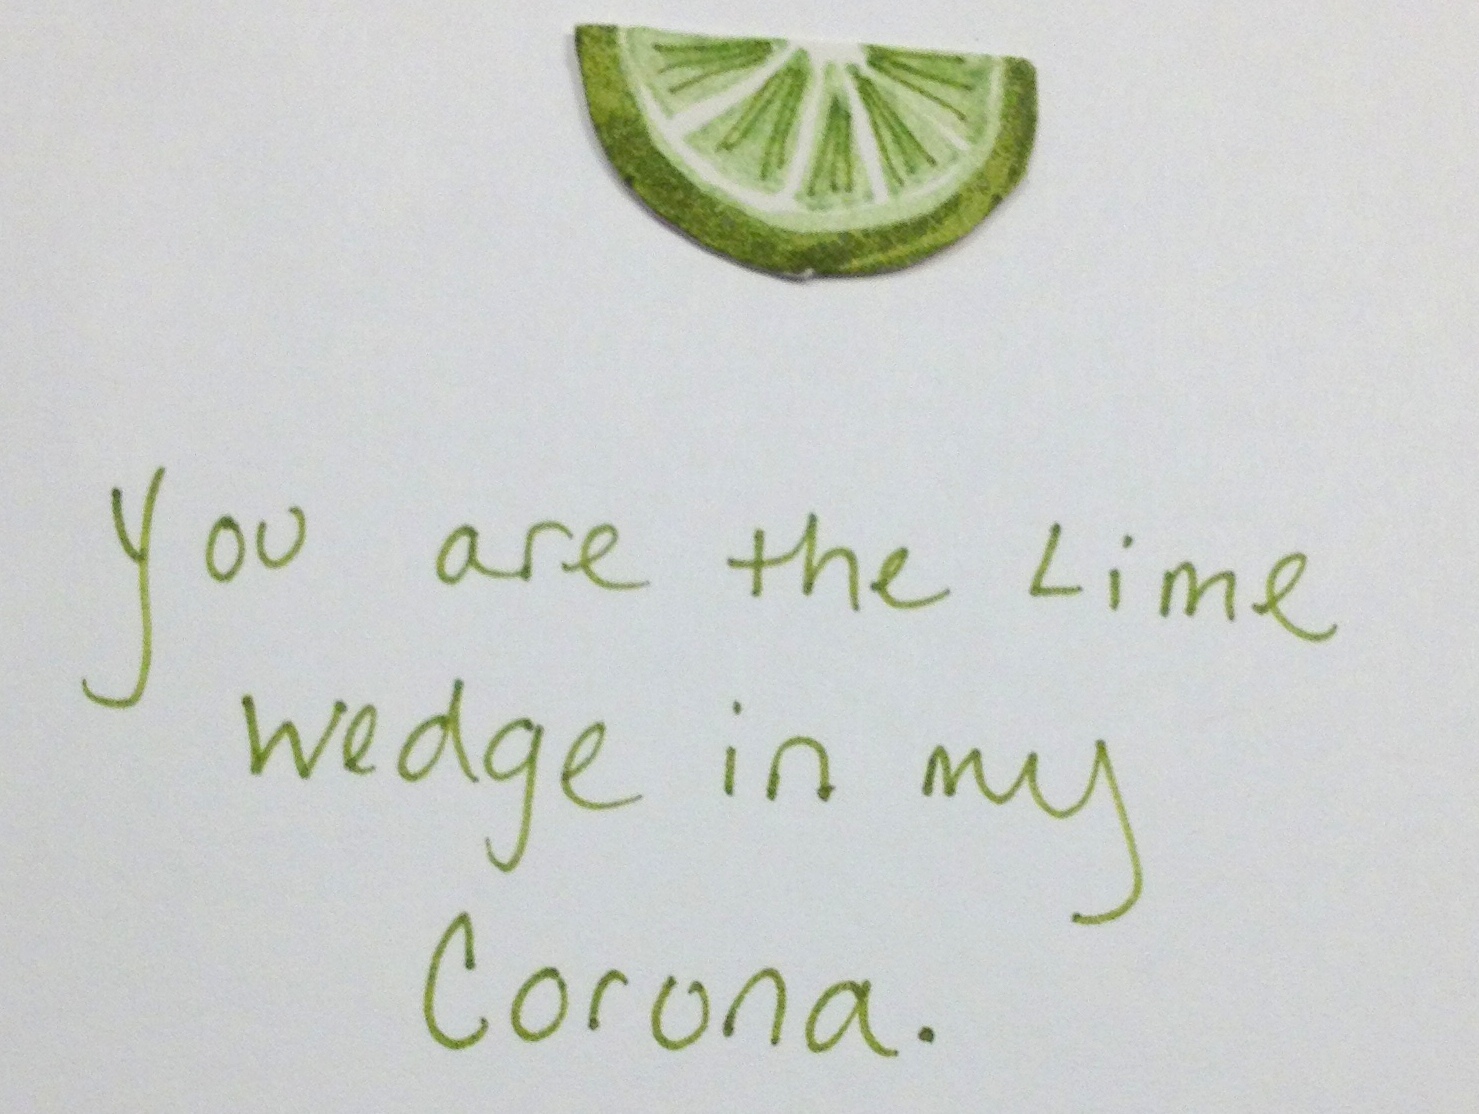 you are the Lime
wedge in my
Corona.